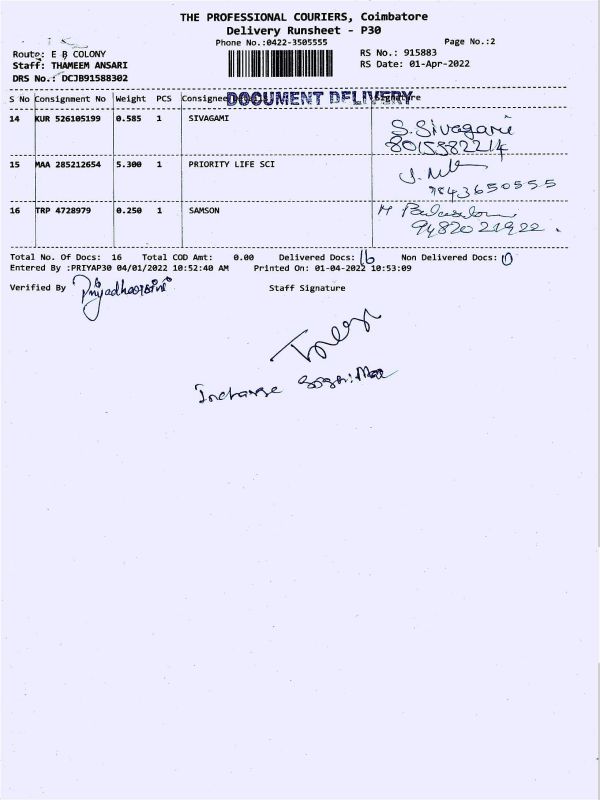 THE PROFESSIONAL COURIERS, Coimbatore
Delivery Runsheet - P30
Phone No.:0422-3505555
Page No.:2
Route: E B COLONY
RS No.: 915883
Staff: THAMEEM ANSARI
RS Date: 01-Apr-2022
DRS No.: DCJB91588302
S No Consignment No Weight PCS Consignee DOCUMENT DELIVERY
14 KUR 526105199 0.585 1 SIVAGAMI S. Sivagami
8015382214
15 MAA 285212654 5.300 1 PRIORITY LIFE SCI
7843650555
16 TRP 4728979 0.250 1 SAMSON M
9482021922.
Total No. Of Docs: 16 Total COD Amt: 0.00 Delivered Docs: 16 Non Delivered Docs: 0
Entered By :PRIYAP30 04/01/2022 10:52:40 AM Printed On: 01-04-2022 10:53:09
Verified By
Staff Signature
Incharge